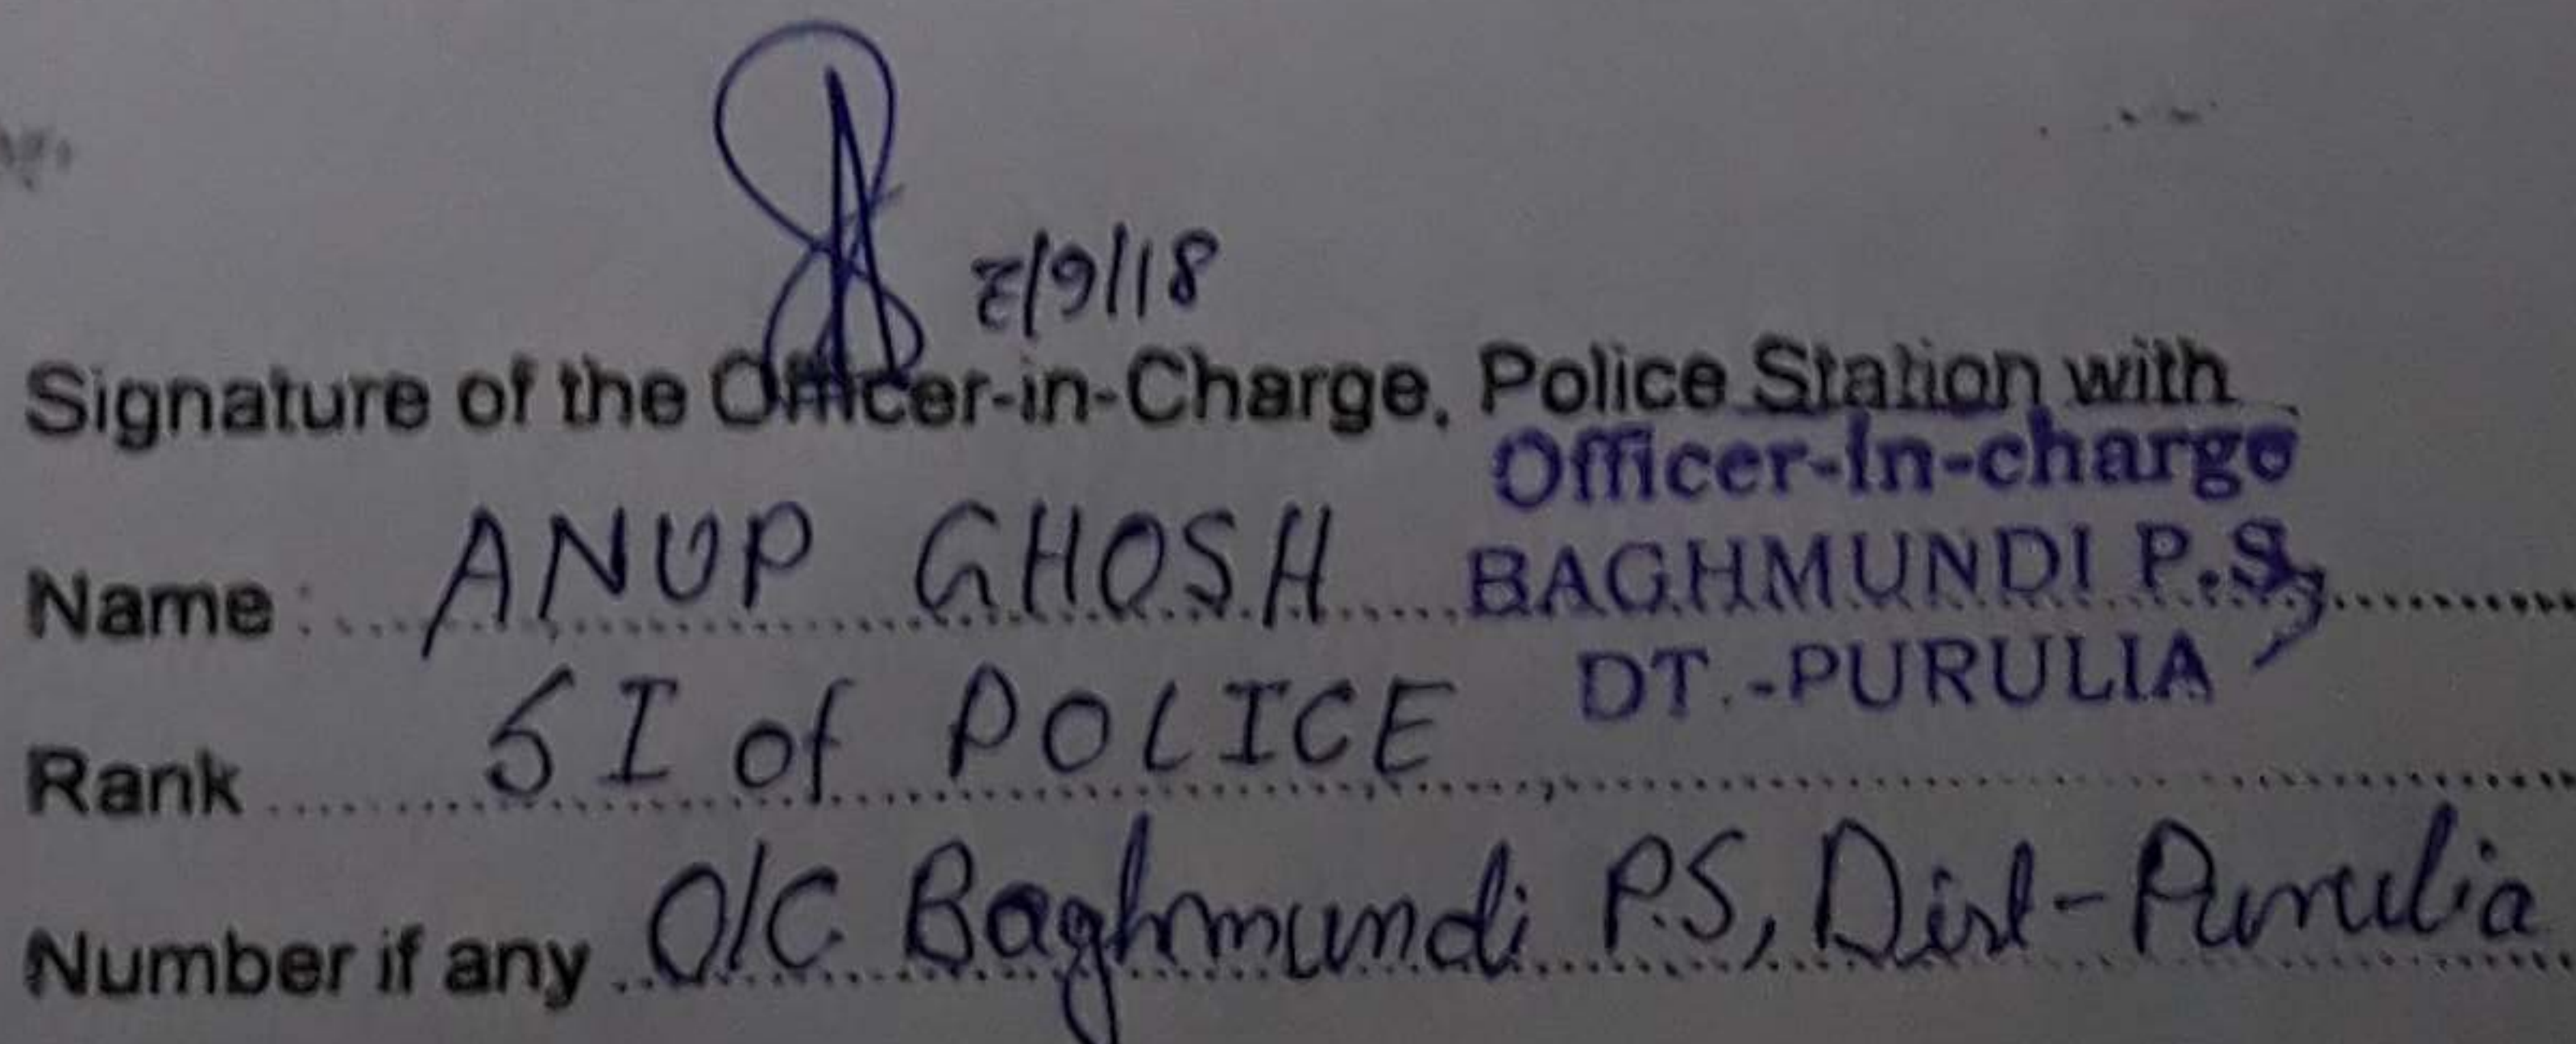 7/9/18
Signature of the Officer-in-Charge, Police Station with
Officer-In-charge
Name : ANUP GHOSH BAGHMUNDI P.S,
DT.-PURULIA
Rank SI of POLICE
Number if any O/C Baghmundi P.S, Dist-Purulia